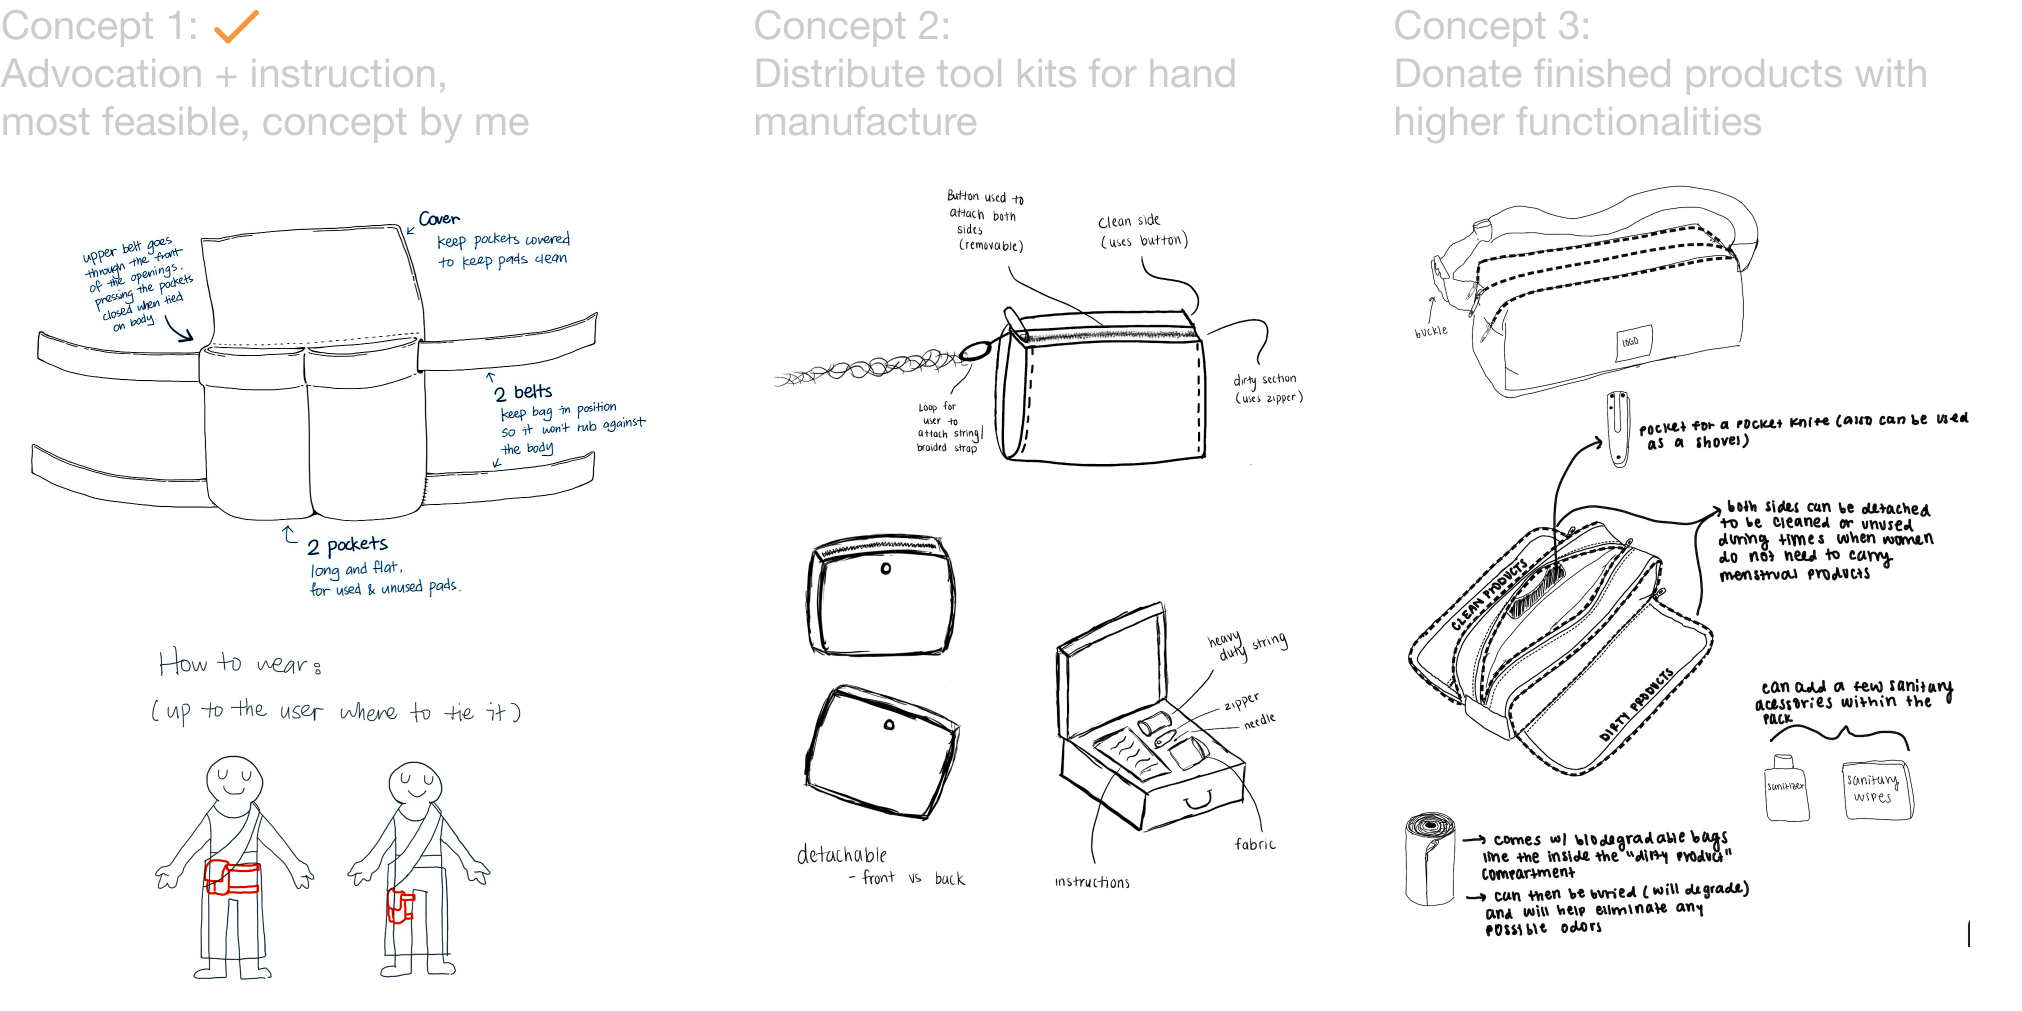 Concept 1:
Advocation + instruction,
most feasible, concept by me
upper belt goes
through the front
of the openings,
pressing the pockets
closed when tied
on body.
Cover
keep pockets covered
to keep pads clean
2 belts
keep bag in position
so it won't rub against
the body
2 pockets
long and flat,
for used & unused pads.
How to wear:
(up to the user where to tie it)
Concept 2:
Distribute tool kits for hand
manufacture
Button used to
attach both
sides
(removable)
Clean side
(uses button)
dirty section
(uses zipper)
Loop for
user to
attach string/
braided strap
detachable
- front vs back
heavy
duty string
zipper
needle
fabric
instructions
Concept 3:
Donate finished products with
higher functionalities
buckle
LOGO
pocket for a pocket knife (also can be used
as a shovel)
both sides can be detached
to be cleaned or unused
during times when women
do not need to carry
menstrual products
CLEAN PRODUCTS
DIRTY PRODUCTS
can add a few sanitary
acessories within the
pack
sanitizer
sanitary
wipes
comes w/ biodegradable bags
line the inside the "dirty product"
compartment
can then be buried (will degrade)
and will help eliminate any
possible odors